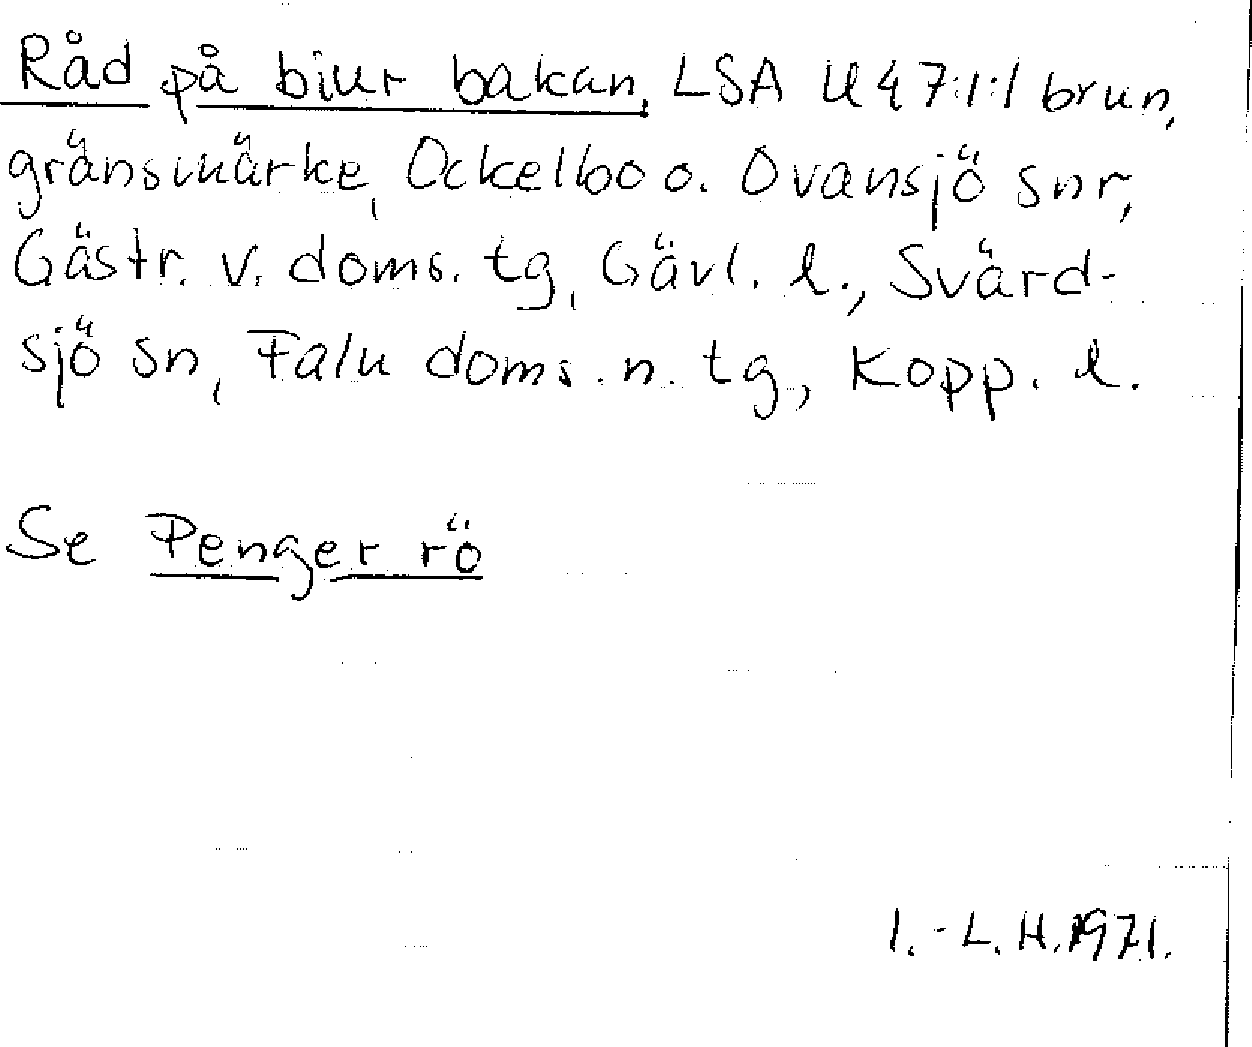 Råd på biur bakan, LSA U47:1:1 brun,
gränsmärke, Ockelbo o. Ovansjö snr,
Gästr. v. doms. tg, Gävl. l., Svärd-
sjö sn, Falu doms. n. tg., Kopp. l.
Se Penger rö
I.-L. H. 1971.